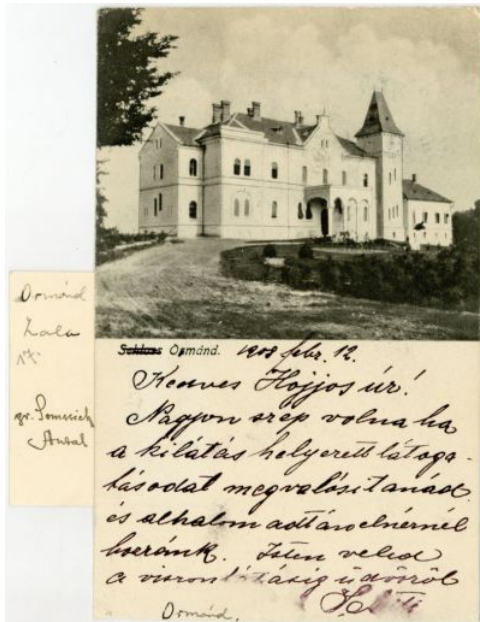 Ormánd
Zala
gr. Somssich
Antal
Schloss Ormánd. 1908 febr. 12.
Kedves Hojjos úr!
Nagyon szép volna ha
a kilátás helyett látoga-
tásodat megvalósitanád
és alkalom adtán
hozzánk. Isten veled
a viszontlátásig üdvözöl
Ormánd.